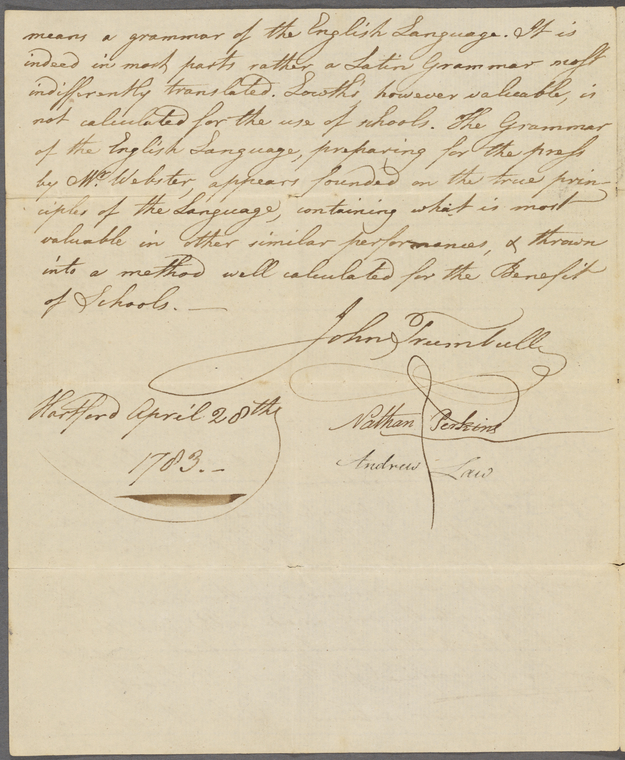 means a grammar of the English Language. It is
indeed in most parts rather a Latin Grammar most
indifferently translated. Lowth's, however valuable, is
not calculated for the use of schools. The Grammar
of the English Language, preparing for the press
by Mr. Webster, appears founded on the true prin-
ciples of the Language, containing what is most
valuable in other similar performances, & thrown
into a method well calculated for the Benefit
of Schools. —
John Trumbull
Hartford April 28th
1783. –
Nathan Perkins
Andrew Law